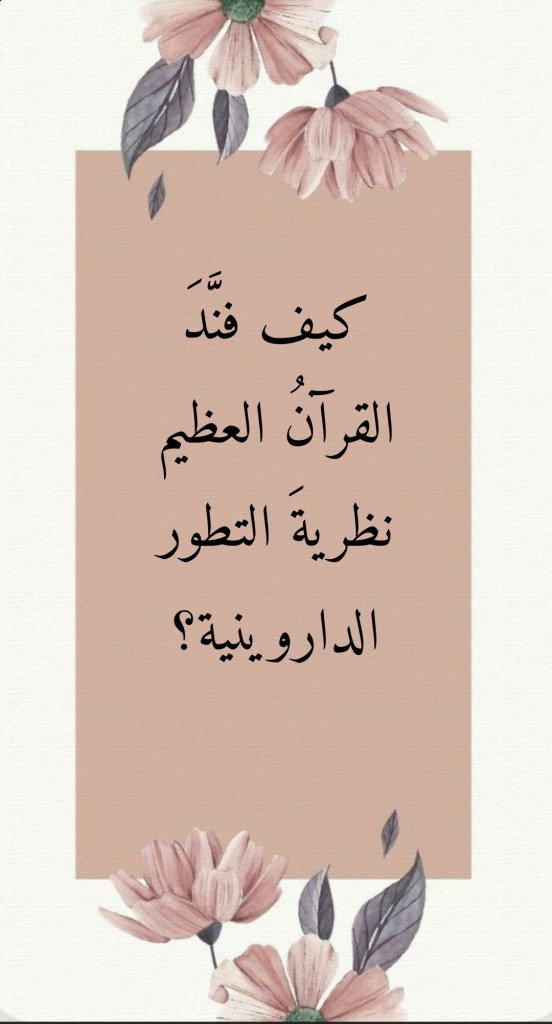 كيف فنَّدَ
القرآنُ العظيم
نظريةَ التطور
الداروينية؟